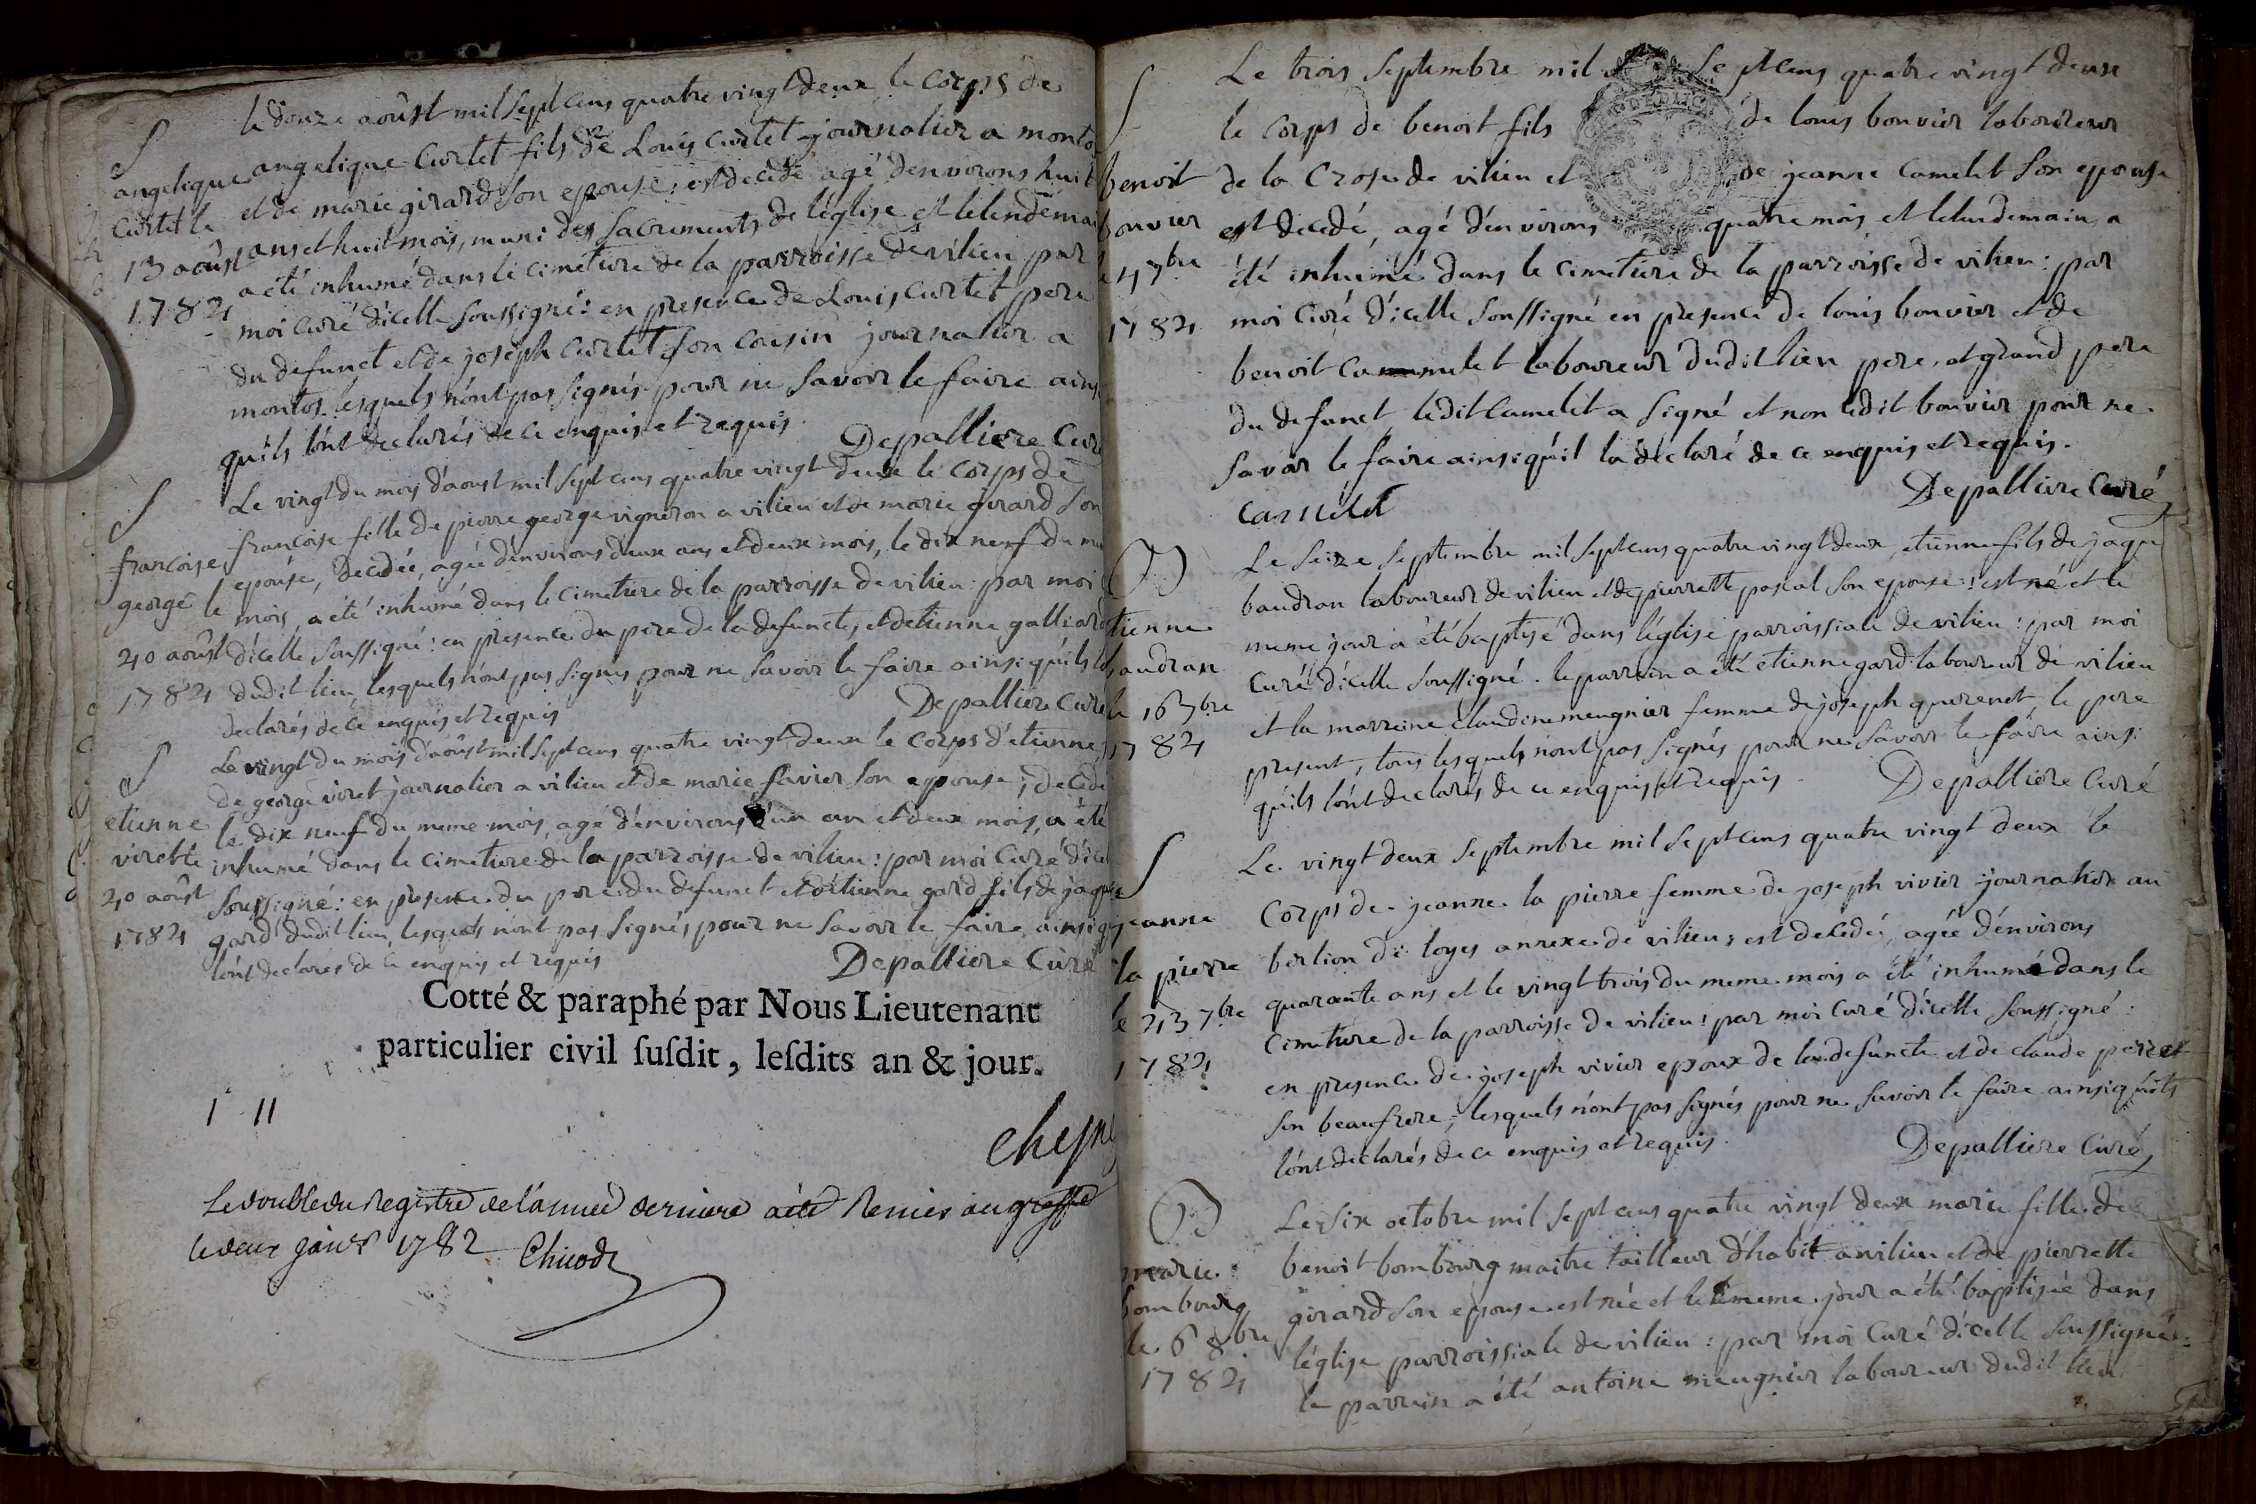 le douze aoûst mil sept cens quatre vingt deux le corps de
S
angelique angelique Curtet fils de Louis Curtet journalier a monto
Curtet le et de marie girard son epouse : est decedé agé denvirons huit
13 aoûst ans et huit mois, muni des sacrements de léglise et lelendemai
1782 a été inhumé dans le cimetiere de la parroisse de vilieu par
moi Curé dicelle soussigné : en presence de Louis Curtet pere
du defunct et de joseph Curtet son cousin journalier a
montos lesquels nónt pas signés pour ne savoir le faire ains
quíls lónt declarés de ce enquis et requis.
Depalliere Curé
S
Le vingt du mois daoust mil sept cens quatre vingt deux le corps de
francoise francoise fille de pierre george vigneron a vilieu et de marie girard son
george le epouse, decedée, agée dénvirons deux ans et deux mois, le dix neuf du me
20 aoûst mois, a été inhumé dans le cimetiere de la parroisse de vilieu : par moi
1782 dícelle soussigné : en presence du pere de la defuncte, et detienne galliard
dudit lieu, lesquels nónt pas signés pour ne savoir le faire ainsi quíls lo
declarés de ce enquis et requis
Depalliere Curé
S
Le vingt du mois daoûst mil sept cens quatre vingt deux le corps détienne
etienne de george viret journalier a vilieu et de marie favier son epouse ; decedé
viret le le dix neuf du meme mois, agé dénvirons un an et deux mois, a été
20 aoûst inhumé dans le cimetiere de la parroisse de vilieu : par moi Curé díce
1782 soussigné : en presence du pere du defunct et détienne gard fils de jaque
gard dudit lieu, lesquels nónt pas signés pour ne savoir le faire ainsi q
lónt declarés de ce enquis et requis
Depalliere Curé
Cotté & paraphé par Nous Lieutenant
particulier civil ſuſdit, leſdits an & jour.
1 11
Le double du Registre de l'année derniere a été Remis au greffe
le deux janer 1782 Chicod
Le trois septembre mil sept cens quatre vingt deux
S
le corps de benoit fils de louis bonvier laboureur
benoit de la Crose de vilieu et de jeanne Camelet son epouse
bonvier est decedé, agé dénvirons quatre mois, et lelendemain a
le 4 7bre été inhumé dans le cimetiere de la parroisse de vilieu : par
1782 moi Curé dícelle soussigné en presence de louis bonvier et de
benoit Camelet laboureur dudit lieu pere, et grand pere
du defunct, ledit Camelet a signé et non ledit bonvier pour ne
savoir le faire ainsi quíl la declaré de ce enquis et requis.
Camelet
Depalliere Curé
B
Le seize septembre mil sept cens quatre vingt deux, etienne fils de jaque
etienne baudran laboureur de vilieu et de pierrette pascal son epouse : est né et le
baudran meme jour a été baptisé dans léglise parroissiale de vilieu : par moi
le 16 7bre Curé dícelle soussigné. le parrain a été etienne gard laboureur de vilieu
1782 et la marraine claudine meugnier femme de joseph querenet, le pere
present, tous lesquels nónt pas signés pour ne savoir le faire ainsi
quíls lónt declarés de ce enquis et requis.
Depalliere Curé
S
Le vingt deux septembre mil sept cens quatre vingt deux le
jeanne Corps de jeanne la pierre femme de joseph vivier journalier au
la pierre berlion de loyes annexe de vilieu ; est decedée, agée dénvirons
le 23 7bre quarante ans et le vingt trois du meme mois a été inhumée dans le
1782 cimetiere de la parroisse de vilieu : par moi Curé dícelle soussigné :
en presence de joseph vivier epoux de la defuncte et de claude peret
son beaufrere ; lesquels nónt pas signés pour ne savoir le faire ainsi quíls
lónt declarés de ce enquis et requis.
Depalliere Curé
B
Le six octobre mil sept cens quatre vingt deux marie fille de
marie benoit bombourg maitre tailleur dhabit a vilieu et de pierrette
bombourg girard son epouse est née et le meme jour a été baptisée dans
le 6 8bre léglise parroissiale de vilieu : par moi Curé dícelle soussigné :
1782 le parrain a été antoine meugnier laboureur dudit lieu